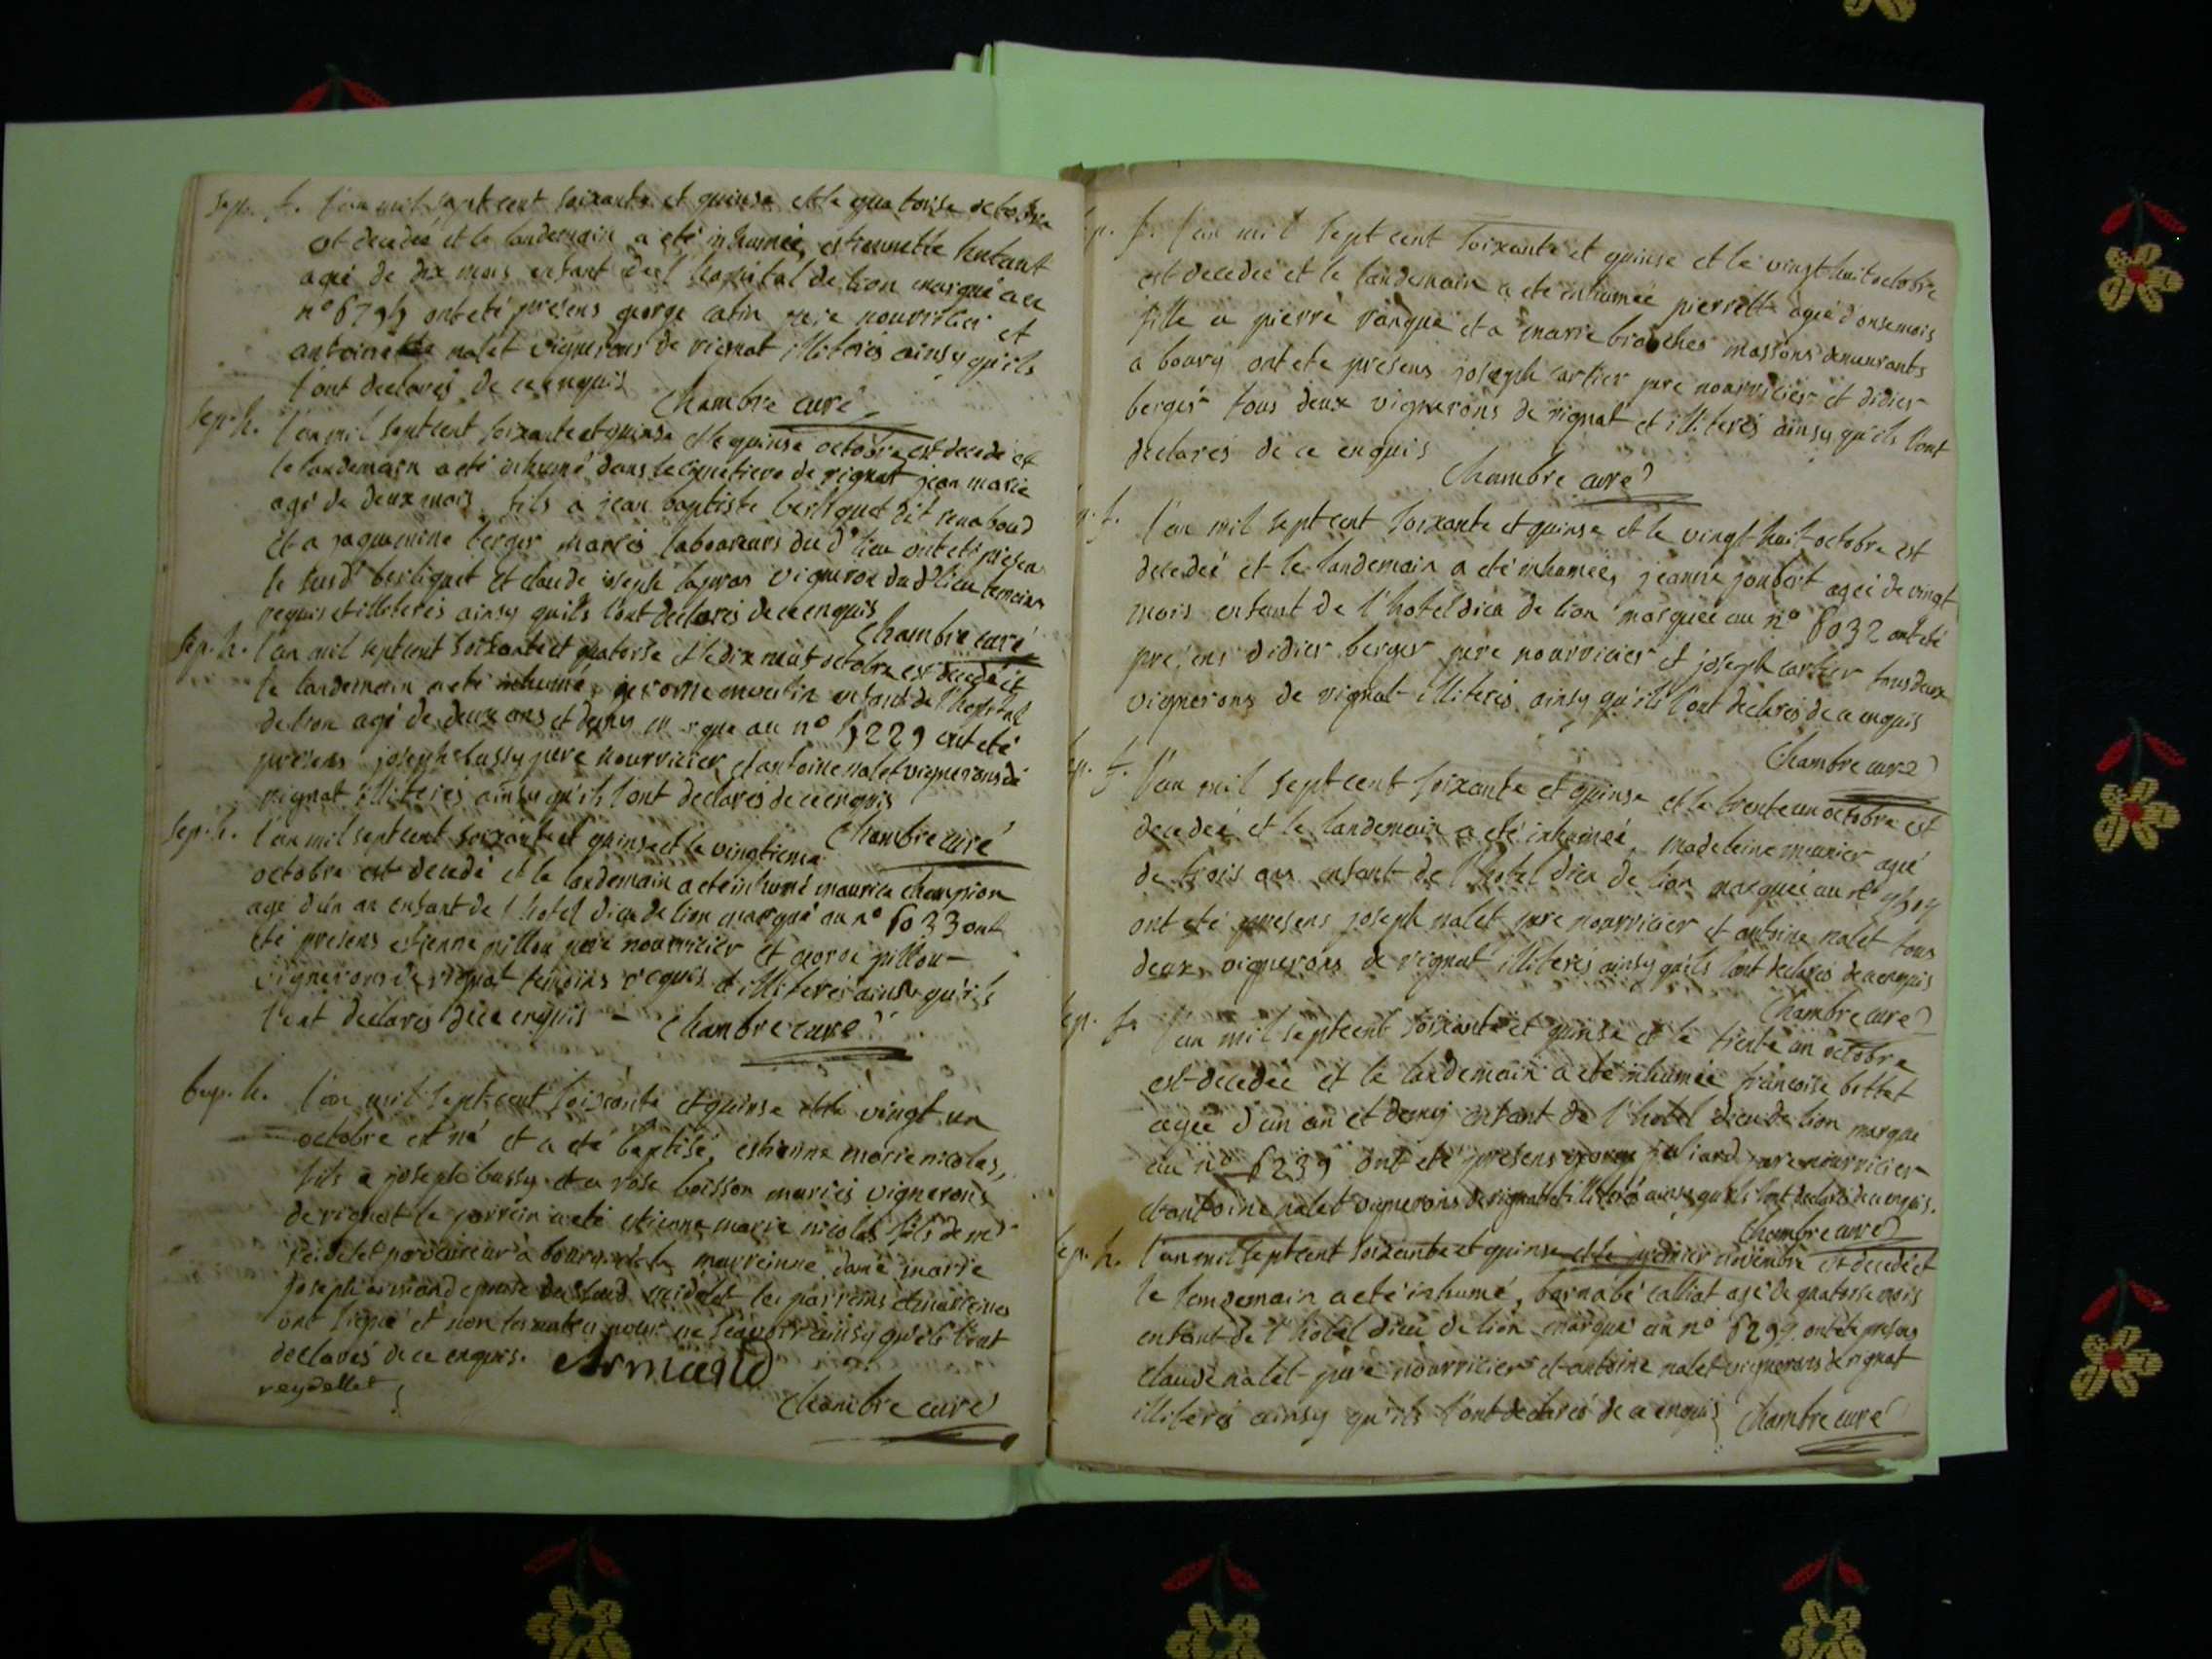 Sep. f. l'an mil sept cent soixante et quinse et le quatorse octobre
est decedée et le landemain a eté inhumée, estiennette
agé de dix mois enfant de l'hopital de lion marqué au
n° ont eté présens george catin pere nourricier et
antoine nalet vignerons de rignat illiterés ainsy qu'ils
l'ont declarés de ce enquis
Chambre curé
Sep. h. l'an mil sept cent soixante et quinse et le quinse octobre est decedé et
le landemain a eté inhumé dans le cimetiere de rignat jean marie
agé de deux mois fils a jean baptiste berliquet dit
et a jaquemine berger mariés laboureurs du d° lieu ont eté présens
le susd° berliquet et claude joseph vigneron du d° lieu temoins
requis et illiterés ainsy qu'ils l'ont declarés de ce enquis
Chambre curé
Sep. h. l'an mil sept cent soixante et quatorse et le dix neuf octobre est decedé et
le landemain a eté inhumé, enfant de l'hopital
de lion agé de deux ans et demy marqué au n° 5229 ont eté
présens joseph bussy pere nourricier et antoine nalet vignerons de
rignat illiterés ainsy qu'ils l'ont declarés de ce enquis
Chambre curé
Sep. h. l'an mil sept cent soixante et quinse et le vingtieme
octobre est decedé et le landemain a eté inhumé maurice champion
agé d'un an enfant de l'hotel dieu de lion marqué au n° 6033 ont
eté présens estienne pillon pere nourricier et george pillon
vignerons de rignat temoins requis et illiterés ainsy qu'ils
l'ont declarés de ce enquis - Chambre curé
bap. h. l'an mil sept cent soixante et quinse et le vingt un
octobre est né et a eté baptisé, estienne marie nicolas,
fils a joseph bussy et a rose boisson mariés vignerons
de rignat le parrein a eté etienne marie nicolas fils de me
reidelet procureur a bourg et la marreinne dame marie
joseph armand epouse du sieur reidelet les parreins et marreines
ont signé et non pour ne sçavoir ainsy qu'ils l'ont
declarés de ce enquis. Armand
reydellet
Chambre curé
Sep. f. l'an mil sept cent soixante et quinse et le vingt huit octobre
est decedée et le landemain a eté inhumée pierrette agée d'onse mois
fille a pierre et a marie massons demeurants
a bourg ont eté présens joseph cartier pere nourricier et didier
berger tous deux vignerons de rignat et illiterés ainsy qu'ils l'ont
declarés de ce enquis
Chambre curé
Sep. f. l'an mil sept cent soixante et quinse et le vingt huit octobre est
decedée et le landemain a eté inhumée, jeanne joubert agée de vingt
mois enfant de l'hotel dieu de lion marquée au n° 6032 ont eté
présens didier berger pere nourricier et joseph cartier tous deux
vignerons de rignat illiterés ainsy qu'ils l'ont declarés de ce enquis
Chambre curé
Sep. f. l'an mil sept cent soixante et quinse et le trente un octobre est
decedée et le landemain a eté inhumée, madeleine meunier agée
de trois ans enfant de l'hotel dieu de lion marquée au n°
ont eté présens joseph nalet pere nourricier et antoine nalet tous
deux vignerons de rignat illiterés ainsy qu'ils l'ont declarés de ce enquis
Chambre curé
Sep. f. l'an mil sept cent soixante et quinse et le trente un octobre
est decedée et le landemain a eté inhumée francoise bettet
agée d'un an et demy enfant de l'hotel dieu de lion marqué
au n° 6239 ont eté présens george juliard pere nourricier
et antoine nalet vignerons de rignat et illiterés ainsy qu'ils l'ont declarés de ce enquis.
Chambre curé
Sep. h. l'an mil sept cent soixante et quinse et le premier novembre est decedé et
le lendemain a eté inhumé, barnabé calliat agé de quatorse mois
enfant de l'hotel dieu de lion marqué au n° 6299 ont eté présens
claude nalet pere nourricier et antoine nalet vignerons de rignat
illiterés ainsy qu'ils l'ont declarés de ce enquis Chambre curé